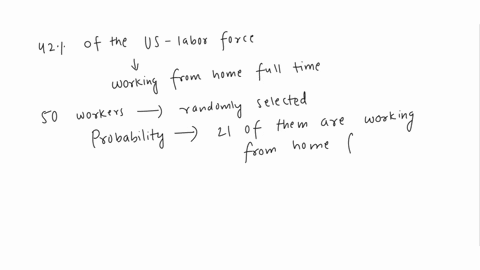 42% of the US-labor force
↓
working from home full time
50 workers → randomly selected
Probability → 21 of them are working
from home (